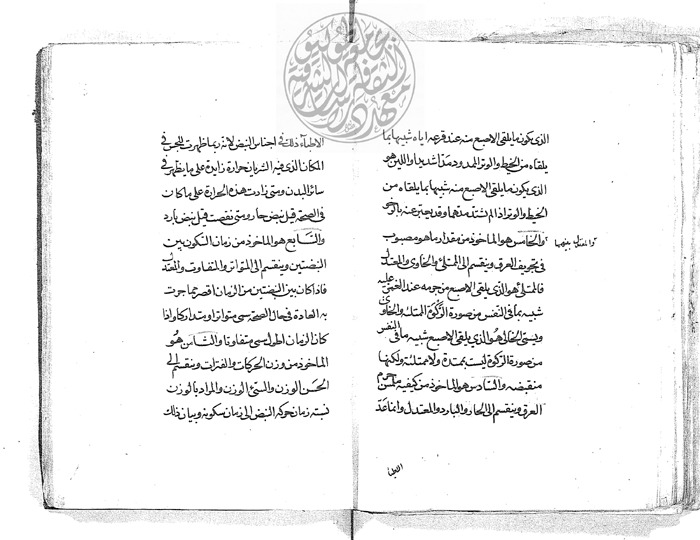 الذى يكون ما يلقى الاصبع منه عند قرعه اياه شبيها بما
يلقاه من الخيط والوتر الممدود مدا شديدا واللين هو
الذى يكون ما يلقى الاصبع منه شبيها بما يلقاه من
الخيط والوتر اذا لم يشتد مدهما وقد يعبر عنه بالرخو
والمعتدل بينهما
والخامس هو الماخوذ من مقدار ما هو مصبوب
فى تجويف العرق وينقسم الى الممتلئ والخاوى والمعتدل
فالممتلئ هو الذى يلقى الاصبع من جرمه عند الغمز عليه
شبيه بما فى النفس من صورة الزكوة الممتلئة والخاوى
ويسمى الخالى هو الذى يلقى الاصبع شبيه ما فى النفس
من صورة الزكوة ليست بممتدة ولا ممتلئة ولكنها
منقبضه والسادس هو الماخوذ من كيفية جرم
العرق وينقسم الى الحار والبارد والمعتدل وانما عد
الاطبا
الاطباء ذلك فى اجناس النبض لانه ربما ظهرت للمجس فى
المكان الذى فيه الشريان حرارة زايدة على ما يظهر فى
سائر البدن ومتى زادت هذه الحرارة على ما كان
فى الصحة قيل نبض حار ومتى نقصت قيل نبض بارد
والسابع هو الماخوذ من زمان السكون بين
النبضتين وينقسم الى المتواتر والمتفاوت والمعتدل
فاذا كان بين النبضتين من الزمان اقصر مما جرت
به العادة فى حال الصحة سمى متواترا ومتداركا واذا
كان الزمان اطول سمى متفاوتا والثامن هو
الماخوذ من وزن الحركات والفترات وينقسم الى
الحسن الوزن والسيئ الوزن والمراد بالوزن
نسبة زمان حركة النبض الى زمان سكونه وبيان ذلك